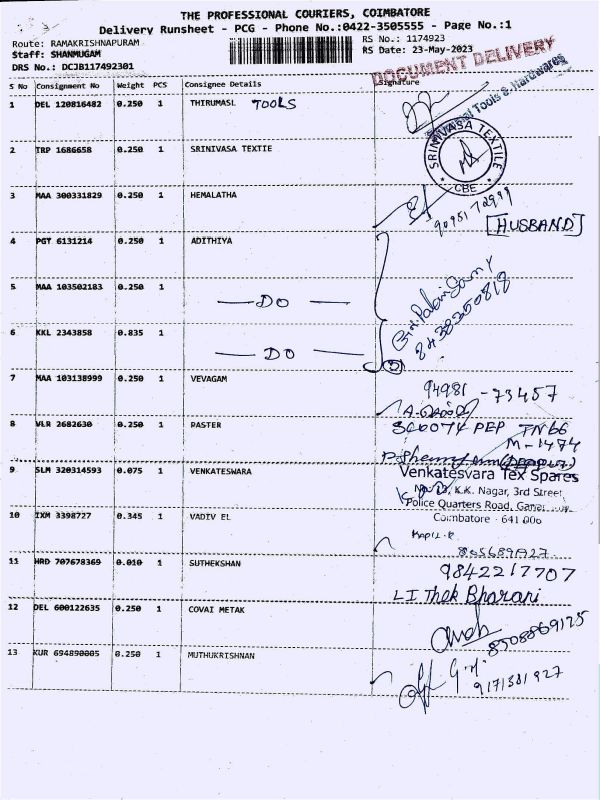 THE PROFESSIONAL COURIERS, COIMBATORE
Delivery Runsheet - PCG - Phone No.:0422-3505555 - Page No.:1
Route: RAMAKRISHNAPURAM RS No.: 1174923
Staff: SHANMUGAM RS Date: 23-May-2023
DRS No.: DCJB117492301
DOCUMENT DELIVERY
S No Consignment No Weight PCS Consignee Details Signature
1 DEL 120816482 0.250 1 THIRUMASL TOOLS
Tools & Hardwares
2 TRP 1686658 0.250 1 SRINIVASA TEXTIE
SRINIVASA TEXTILE
CBE
3 MAA 300331829 0.250 1 HEMALATHA
[HUSBAND]
4 PGT 6131214 0.250 1 ADITHIYA
5 MAA 103502183 0.250 1 — DO —
8438350818
6 KKL 2343858 0.835 1 — DO —
3
7 MAA 103138999 0.250 1 VEVAGAM
94981 - 73457
8 VLR 2682630 0.250 1 RASTER
PEP TN66
M-1474
9 SLM 320314593 0.075 1 VENKATESWARA
Venkatesvara Tex Spares
K.K. Nagar, 3rd Street,
Police Quarters Road,
Coimbatore - 641 006
10 IXM 3398727 0.345 1 VADIV EL
KAPIL.R
11 HRD 707678369 0.010 1 SUTHEKSHAN
9842217707
Bharani
12 DEL 600122635 0.250 1 COVAI METAK
8508869125
13 KUR 694890005 0.250 1 MUTHUKRISHNAN
9171381927